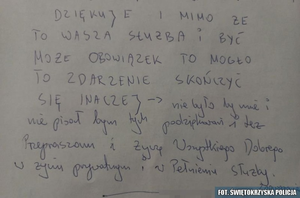 DZIĘKUJE I MIMO ŻE
TO WASZA SŁUŻBA i BYĆ
MOŻE OBOWIĄZEK TO MOGŁO
TO ZDARZENIE SKOŃCZYĆ
SIĘ INACZEJ → nie było by mnie i
nie pisał bym tych podziękowań i też
Przepraszam i życzę Wszystkiego Dobrego
w życiu prywatnym i w Pełnieniu służby.
FOT. ŚWIĘTOKRZYSKA POLICJA